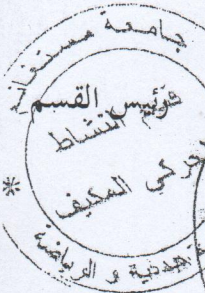 جامعة مستغانم
رئيس القسم
النشاط
الحركي المكيف
البدنية و الرياضية